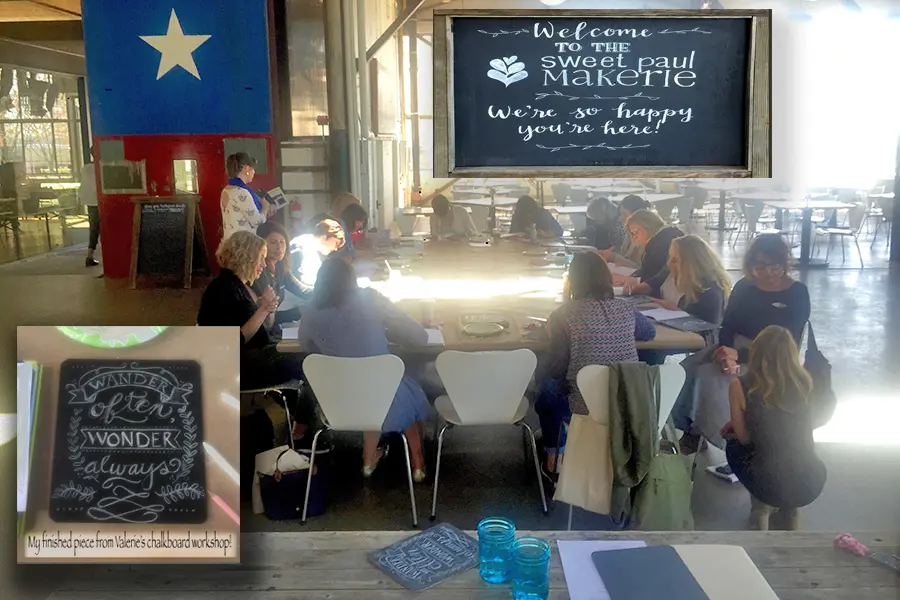 Welcome
TO THE
sweet paul
makerie
We're so happy
you're here!
WANDER
often,
WONDER
always
My finished piece from Valerie's chalkboard workshop!